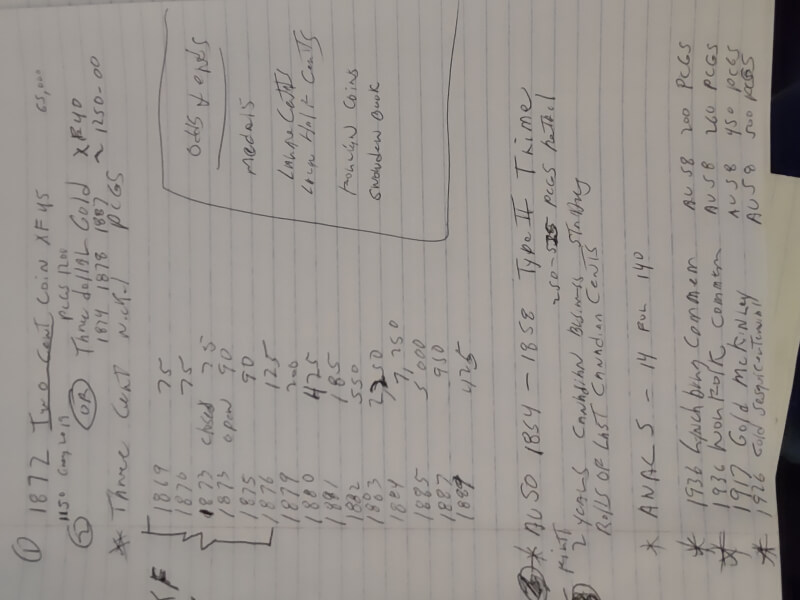 ① 1872 Two Cent Coin XF45 65,000
1150 PCGS 1200
OR Three dollar Gold XF40
1874 1878 1887
* Three Cent Nickel PCGS ~ 1250-00
XF
1869 75
1870 75
1873 closed 75
1873 open 90
1875 90
1876 125
1879 200
1880 425
1881 185
1882 550
1883 2250
1884 7,250
1885 5000
1887 950
1889 425
Odds & Ends
Medals
Large Cents
Large Half Cents
Foreign Coins
Snowden Book
* AU50 1854 - 1858 Type II Trime
250-525 PCGS Retail
Mint
2 years Canadian Business Starting
Rolls of Last Canadian Cents
* ANACS - 14 for 140
* 1936 Lynchburg Commem AU58 200 PCGS
* 1936 Norfolk Commem AU58 260 PCGS
* 1917 Gold McKinley AU58 450 PCGS
* 1926 Gold Sesquicentennial AU58 500 PCGS